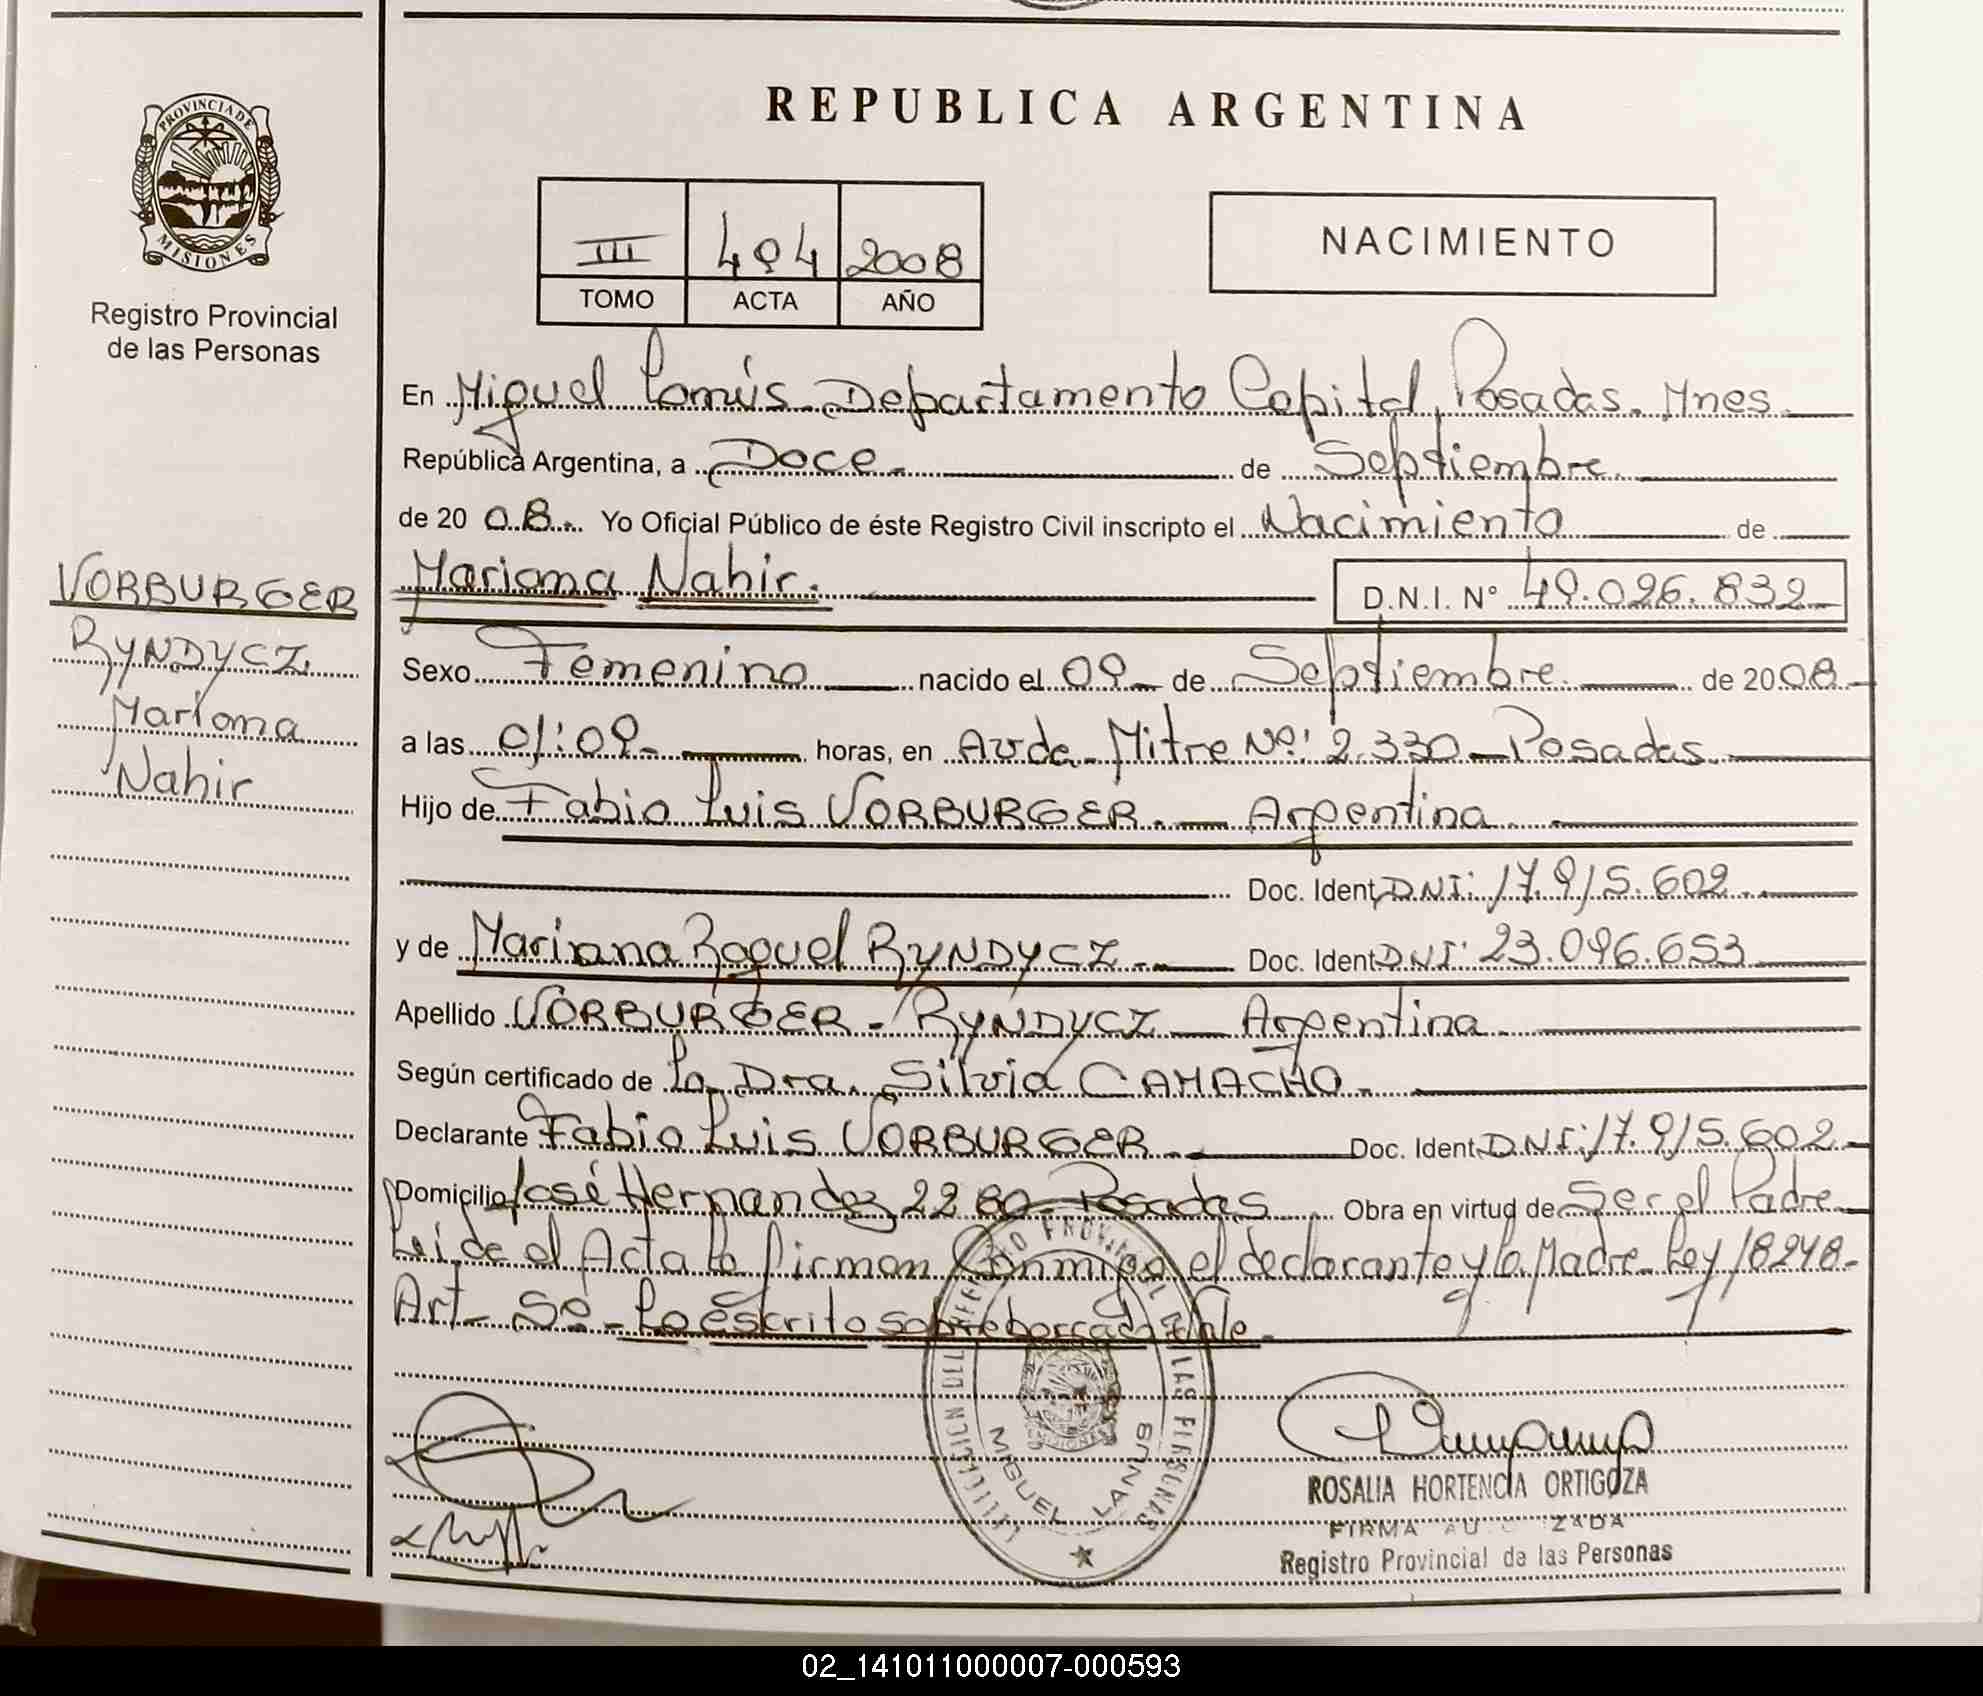 REPUBLICA ARGENTINA
PROVINCIA DE
MISIONES
Registro Provincial
de las Personas
III 494 2008
TOMO ACTA AÑO
NACIMIENTO
En Miguel Lanús. Departamento Capital, Posadas. Mnes.
República Argentina, a Doce. de Septiembre.
de 20 08. Yo Oficial Público de éste Registro Civil inscripto el Nacimiento de
VORBURGER
RYNDYCZ.
Mariana
Nahir
Mariana Nahir. D.N.I. N° 49.096.832
Sexo Femenino nacido el 09 de Septiembre. de 2008
a las 01:09 horas, en Avda. Mitre Nº: 2.330 - Posadas.
Hijo de Fabio Luis VORBURGER. Argentina
Doc. Ident. DNI: 17.915.602
y de Mariana Raquel RYNDYCZ. Doc. Ident. DNI: 23.096.653
Apellido VORBURGER - RYNDYCZ Argentina
Según certificado de La Dra. Silvia CAMACHO.
Declarante Fabio Luis VORBURGER. Doc. Ident. DNI: 17.915.602
Domicilio José Hernandez 2280 Posadas Obra en virtud de Ser el Padre
Leida el Acta la firman Conmigo el declarante y la Madre. Ley 18248.
Art. 5º. Lo escrito sobre borrado Vale.
MIGUEL LANUS
ROSALIA HORTENCIA ORTIGOZA
FIRMA AUTORIZADA
Registro Provincial de las Personas
02_141011000007-000593